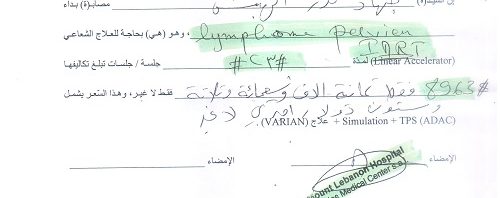 مصاب(ة) بداء
lymphome pelvien ، وهو (هي) بحاجة للعلاج الشعاعي
(Linear Accelerator) لمدة #٢٣# جلسة / جلسات تبلغ تكاليفها
#8963 فقط ثمانية الاف وتسعمائة وثلاثة فقط لا غير، وهذا السعر يشمل
وستون دولار اميركي لا غير
علاج (VARIAN) + Simulation + TPS (ADAC)
الإمضاء الإمضاء
ount Lebanon Hospital
Medical Center s.a.